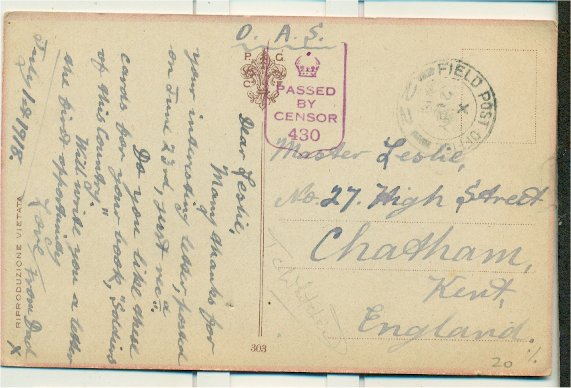 O. A. S.
P. G.
C. F.
PASSED
BY
CENSOR
430
FIELD POST OF
Dear Leslie,
Many thanks for
your interesting letter, posted
on June 23rd, just rec'd.
Do you like these
cards for your book, "Soldiers
of this Country."
Will write you a letter
the first opportunity
Love from Dad
July 1st 1918.
X
Master Leslie,
No. 27. High Street
Chatham,
Kent,
England.
RIPRODUZIONE VIETATA
303
20
1/-